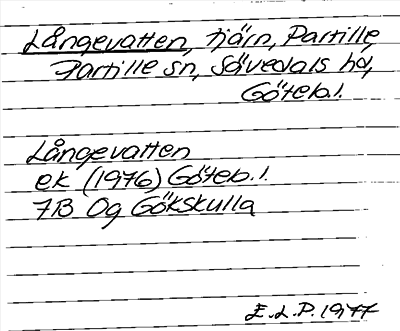 Långevatten, tjärn, Partille,
Partille sn, Sävedals hd,
Göteb.l.
Långevatten
ek (1976) Göteb.l.
7B 0g Gökskulla
E.L.P. 1977